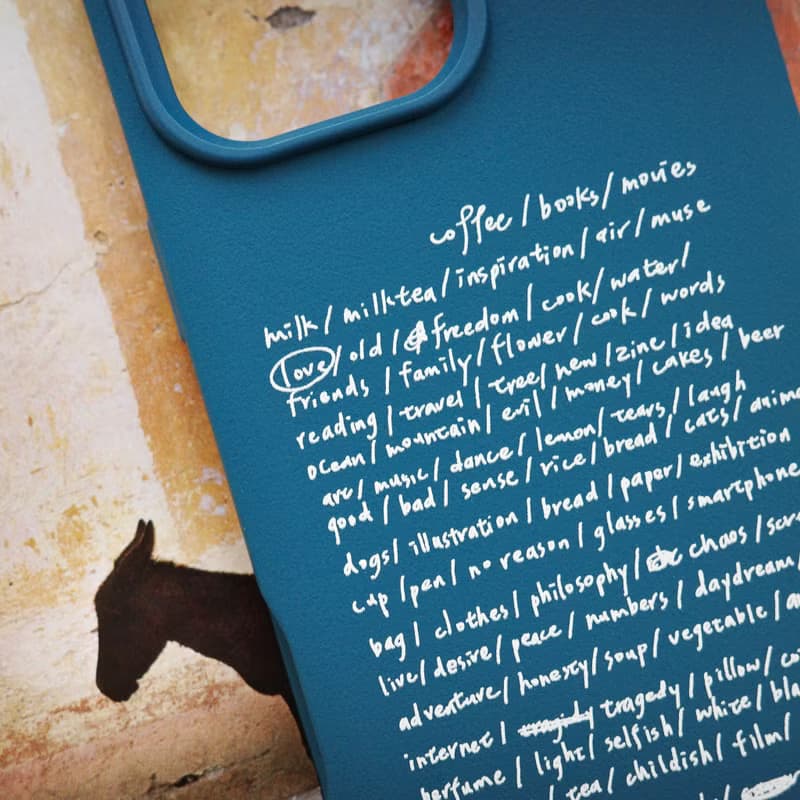 coffee / books / movies
milk / milktea / inspiration / air / muse
love / old / freedom / cook / water /
friends / family / flower / cook / words
reading / travel / tree / new / zine / idea
ocean / mountain / evil / money / cakes / beer
art / music / dance / lemon / tears / laugh
good / bad / sense / rice / bread / cats / anima
dogs / illustration / bread / paper / exhibition
cup / pen / no reason / glasses / smartphone
bag / clothes / philosophy / chaos /
live / desire / peace / numbers / daydream /
adventure / honesty / soup / vegetable /
internet / tragedy tragedy / pillow /
perfume / light / selfish / white /
/ tea / childish / film /